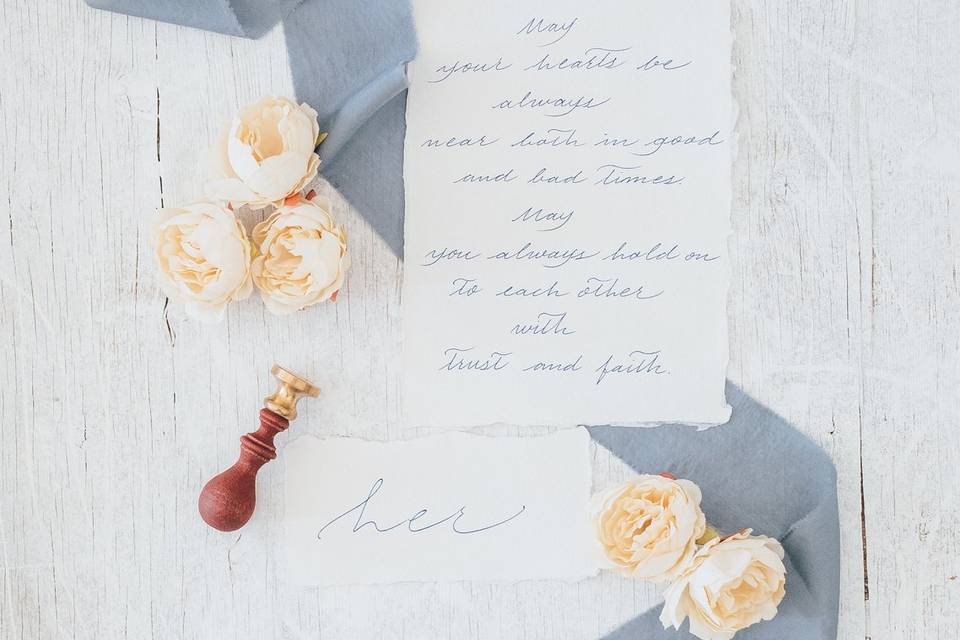 May
your hearts be
always
near both in good
and bad times.
May
you always hold on
to each other
with
trust and faith.
her